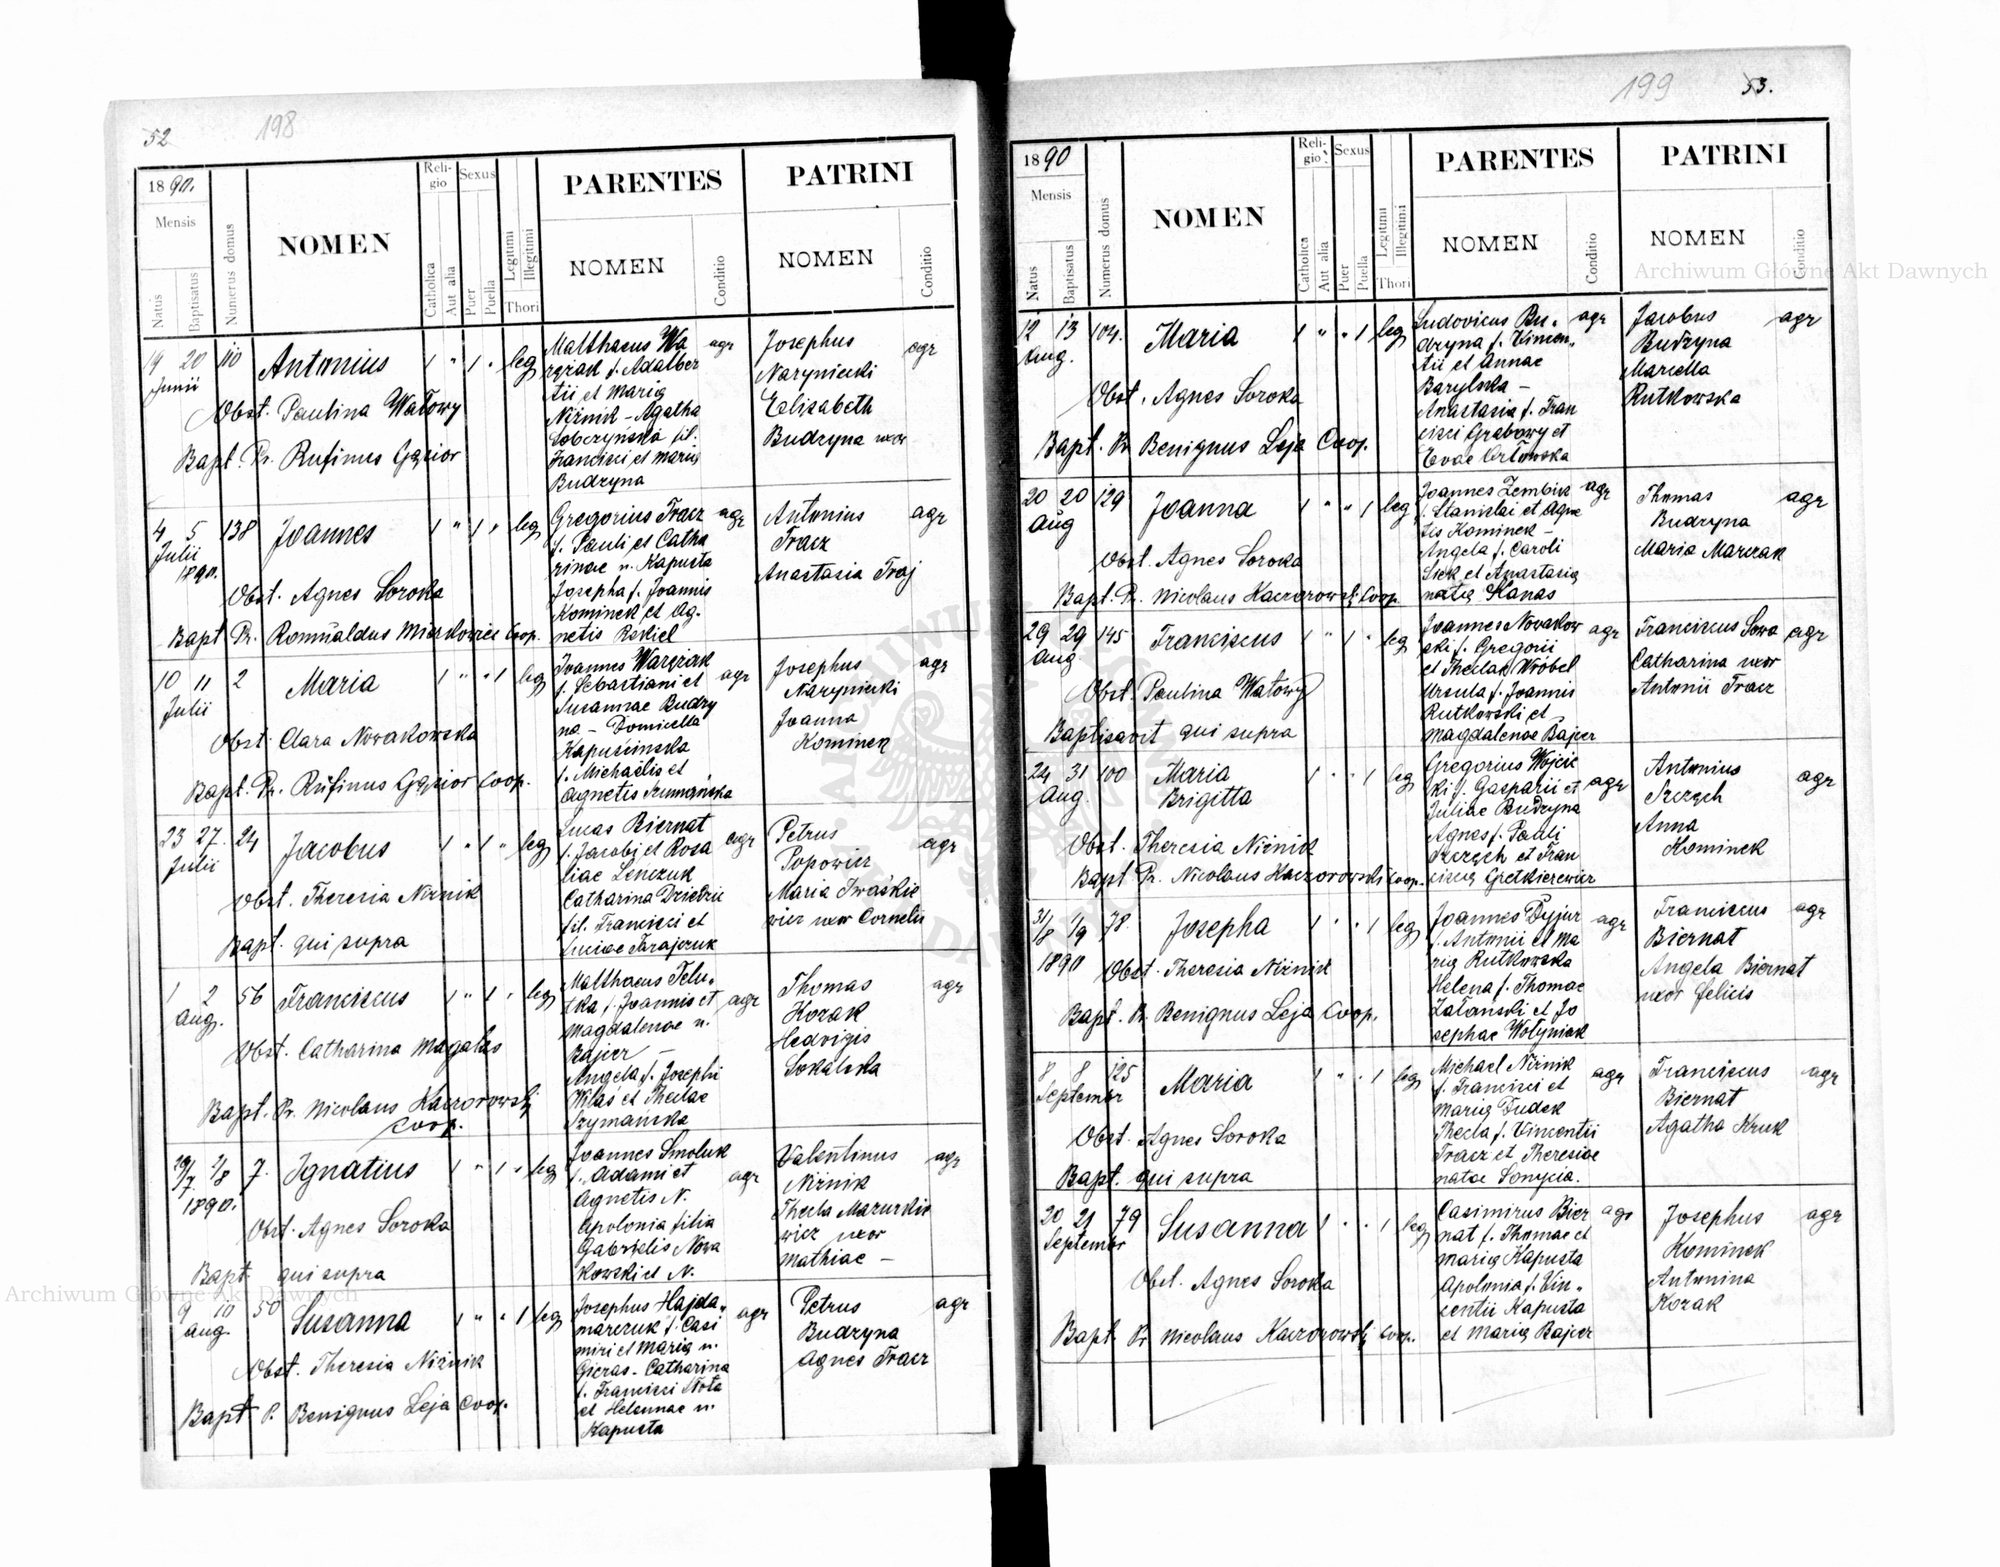 52 198
1890.
Mensis
Natus
Baptisatus
Numerus domus
NOMEN
Religio
Catholica
Aut alia
Sexus
Puer
Puella
Legitimi
Illegitimi
Thori
PARENTES
NOMEN
Conditio
PATRINI
NOMEN
Conditio
19 20 110 Antonius 1 " 1 " leg
Junii
Obst. Paulina Watowy
Bapt. Pr. Rufinus Gąsior
Matthaeus Wa
rżak f. Adalber
tii et Maria
Niżnik - Agatha
Łobczyńska fil.
Francisci et Maria
Budzyna
agr
Josephus
Naryniecki
Elisabeth
Budzyna uxor
agr
4 5 138 Joannes 1 " 1 " leg
Julii
1890.
Obst. Agnes Soroka
Bapt Pr. Romualdus Coop.
Gregorius Tracz
f. Pauli et Catha
rinae n. Kapusta
Josepha f. Joannis
Kominek et Ag-
netis Rekiel
agr
Antonius
Tracz
Anastasia Traj
agr
10 11 2 Maria 1 " " 1 leg
Julii
Obst. Clara Nowakowska
Bapt. Pr. Rufinus Gąsior Coop.
Joannes Warżak
f. Sebastiani et
Susannae Budzy
na - Domicella
Kapuścinska
f. Michaelis et
Agnetis Szumańska
agr
Josephus
Naryniecki
Joanna
Kominek
agr
23 27 24 Jacobus 1 " 1 " leg
Julii
Obst. Theresia Niżnik
Bapt. qui supra
Lucas Biernat
f. Jacobi et Rosa
liae Lenczuk
Catharina Dziedzic
fil. Francisci et
Luciae Tarajczuk
agr
Petrus
Popowicz
Maria Iwaśkie
wicz uxor Cornelii
agr
1 2 56 Franciscus 1 " 1 " leg
Aug.
Obst. Catharina Magalas
Bapt. Pr. Nicolaus Kaczorowski
Coop.
Matthaeus Telu-
ska f. Joannis et
Magdalenae n.
Bajier -
Angela f. Josephi
Wilas et Theclae
Szymańska
agr
Thomas
Kozak
Hedvigis
Sokalska
agr
29/7 2/8 7. Ignatius 1 " 1 " leg
1890.
Obst. Agnes Soroka
Bapt. qui supra
Joannes Smoluk
f. Adami et
Agnetis N.
Apolonia filia
Gabrielis Nowa
kowski et N.
agr
Valentinus
Niżnik
Thecla Mazurkie
wicz uxor
Mathiae -
agr
9 10 50 Susanna 1 " " 1 leg
Aug.
Obst. Theresia Niżnik
Bapt P. Benignus Leja Coop.
Josephus Hajda-
marczuk f. Casi
miri et Maria n.
Gieras - Catharina
f. Francisci Nota
et Helennae n.
Kapusta
agr
Petrus
Budzyna
Agnes Tracz
agr
199 53.
1890
Mensis
Natus
Baptisatus
Numerus domus
NOMEN
Religio
Catholica
Aut alia
Sexus
Puer
Puella
Legitimi
Illegitimi
Thori
PARENTES
NOMEN
Conditio
PATRINI
NOMEN
Conditio
12 13 104. Maria 1 " " 1 leg
Aug.
Obst. Agnes Soroka
Bapt. Pr Benignus Leja Coop.
Ludovicus Bu-
dzyna f. Vincen-
tii et Annae
Barylska -
Anastasia f. Fran
cisci Grabowy et
Evae Orłowska
agr
Jacobus
Budzyna
Marcella
Rutkowska
agr
20 20 129 Joanna 1 " " 1 leg
Aug
Obst. Agnes Soroka
Bapt. Pr. Nicolaus Kaczorowski Coop
Joannes Zembik
f. Stanislai et Agne
tis Kominek -
Angela f. Caroli
Siek et Anastasia
nata Kanas
agr
Thomas
Budzyna
Maria Marczak
agr
29 29 145 Franciscus 1 " 1 " leg
Aug.
Obst. Paulina Watowy
Baptisavit qui supra
Joannes Novakow
ski f. Gregorii
et Theclae Wróbel
Ursula f. Joannis
Rutkowski et
Magdalenae Bajier
agr
Franciscus Sowa
Catharina uxor
Antonii Tracz
agr
24 31 100 Maria 1 " " 1 leg
Aug. Brigitta
Obst. Theresia Niżnik
Bapt Pr. Nicolaus Kaczorowski Coop.
Gregorius Wojcic
ki f. Gasparii et
Juliae Budzyna
Agnes f. Pauli
Szczęch et Fran
cisca Gretkierewicz
agr
Antonius
Szczęch
Anna
Kominek
agr
31/8 1/9 78. Josepha 1 " " 1 leg
1890
Obst. Theresia Niżnik
Bapt. Pr. Benignus Leja Coop.
Joannes Dyjur
f. Antonii et Ma
ria Rutkowska
Helena f. Thomae
Załanski et Jo
sephae Wołyniak
agr
Franciscus
Biernat
Angela Biernat
uxor Felicis
agr
8 8 125 Maria 1 " " 1 leg
Septembr
Obst. Agnes Soroka
Bapt. qui supra
Michael Niżnik
f. Francisci et
Maria Dudek
Thecla f. Vincentii
Tracz et Theresiae
natae Sonycia.
agr
Franciscus
Biernat
Agatha Kruk
agr
20 21 79 Susanna 1 " " 1 leg
Septembr
Obst. Agnes Soroka
Bapt Pr Nicolaus Kaczorowski Coop.
Casimirus Bier
nat f. Thomae et
Maria Kapusta
Apolonia f. Vin-
centii Kapusta
et Maria Bajier
agr
Josephus
Kominek
Antonina
Kozak
agr
Archiwum Główne Akt Dawnych
Archiwum Główne Akt Dawnych